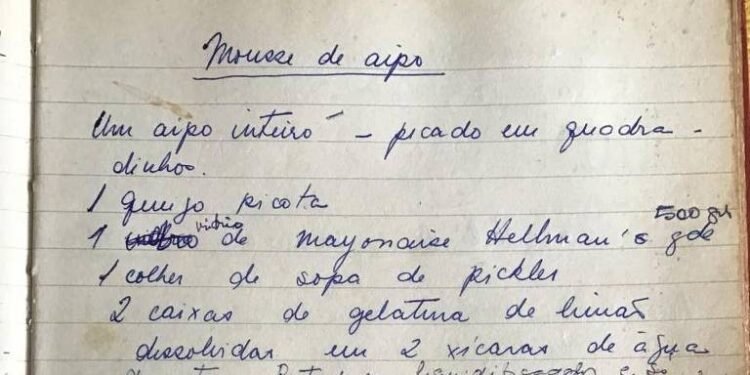 Mousse de aipo
Um aipo inteiro – picado em quadra-
dinhos.
1 queijo picota
500 gr
1 vidro de mayonaise Hellman's gde
1 colher de sopa de pickles
2 caixas de gelatina de limão
dissolvidas em 2 xícaras de água